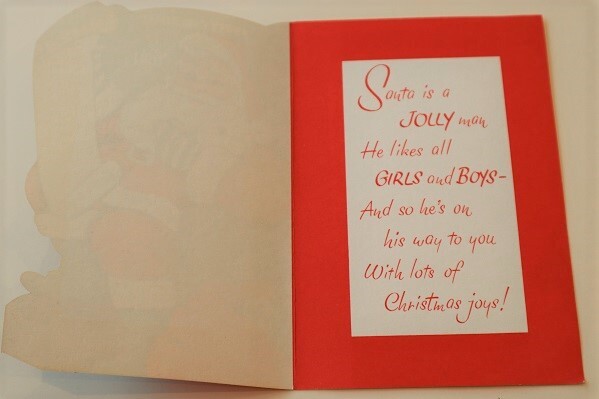 Santa is a
JOLLY man
He likes all
GIRLS and BOYS-
And so he's on
his way to you
With lots of
Christmas joys!